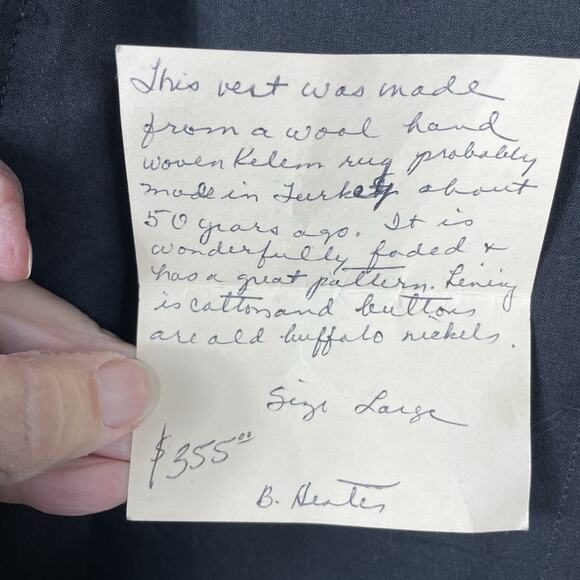 This vest was made
from a wool hand
woven Kelem rug probably
made in Turkey about
50 years ago. It is
wonderfully faded +
has a great pattern. Lining
is cotton and buttons
are old buffalo nickels.
Size Large
$355.00
B.